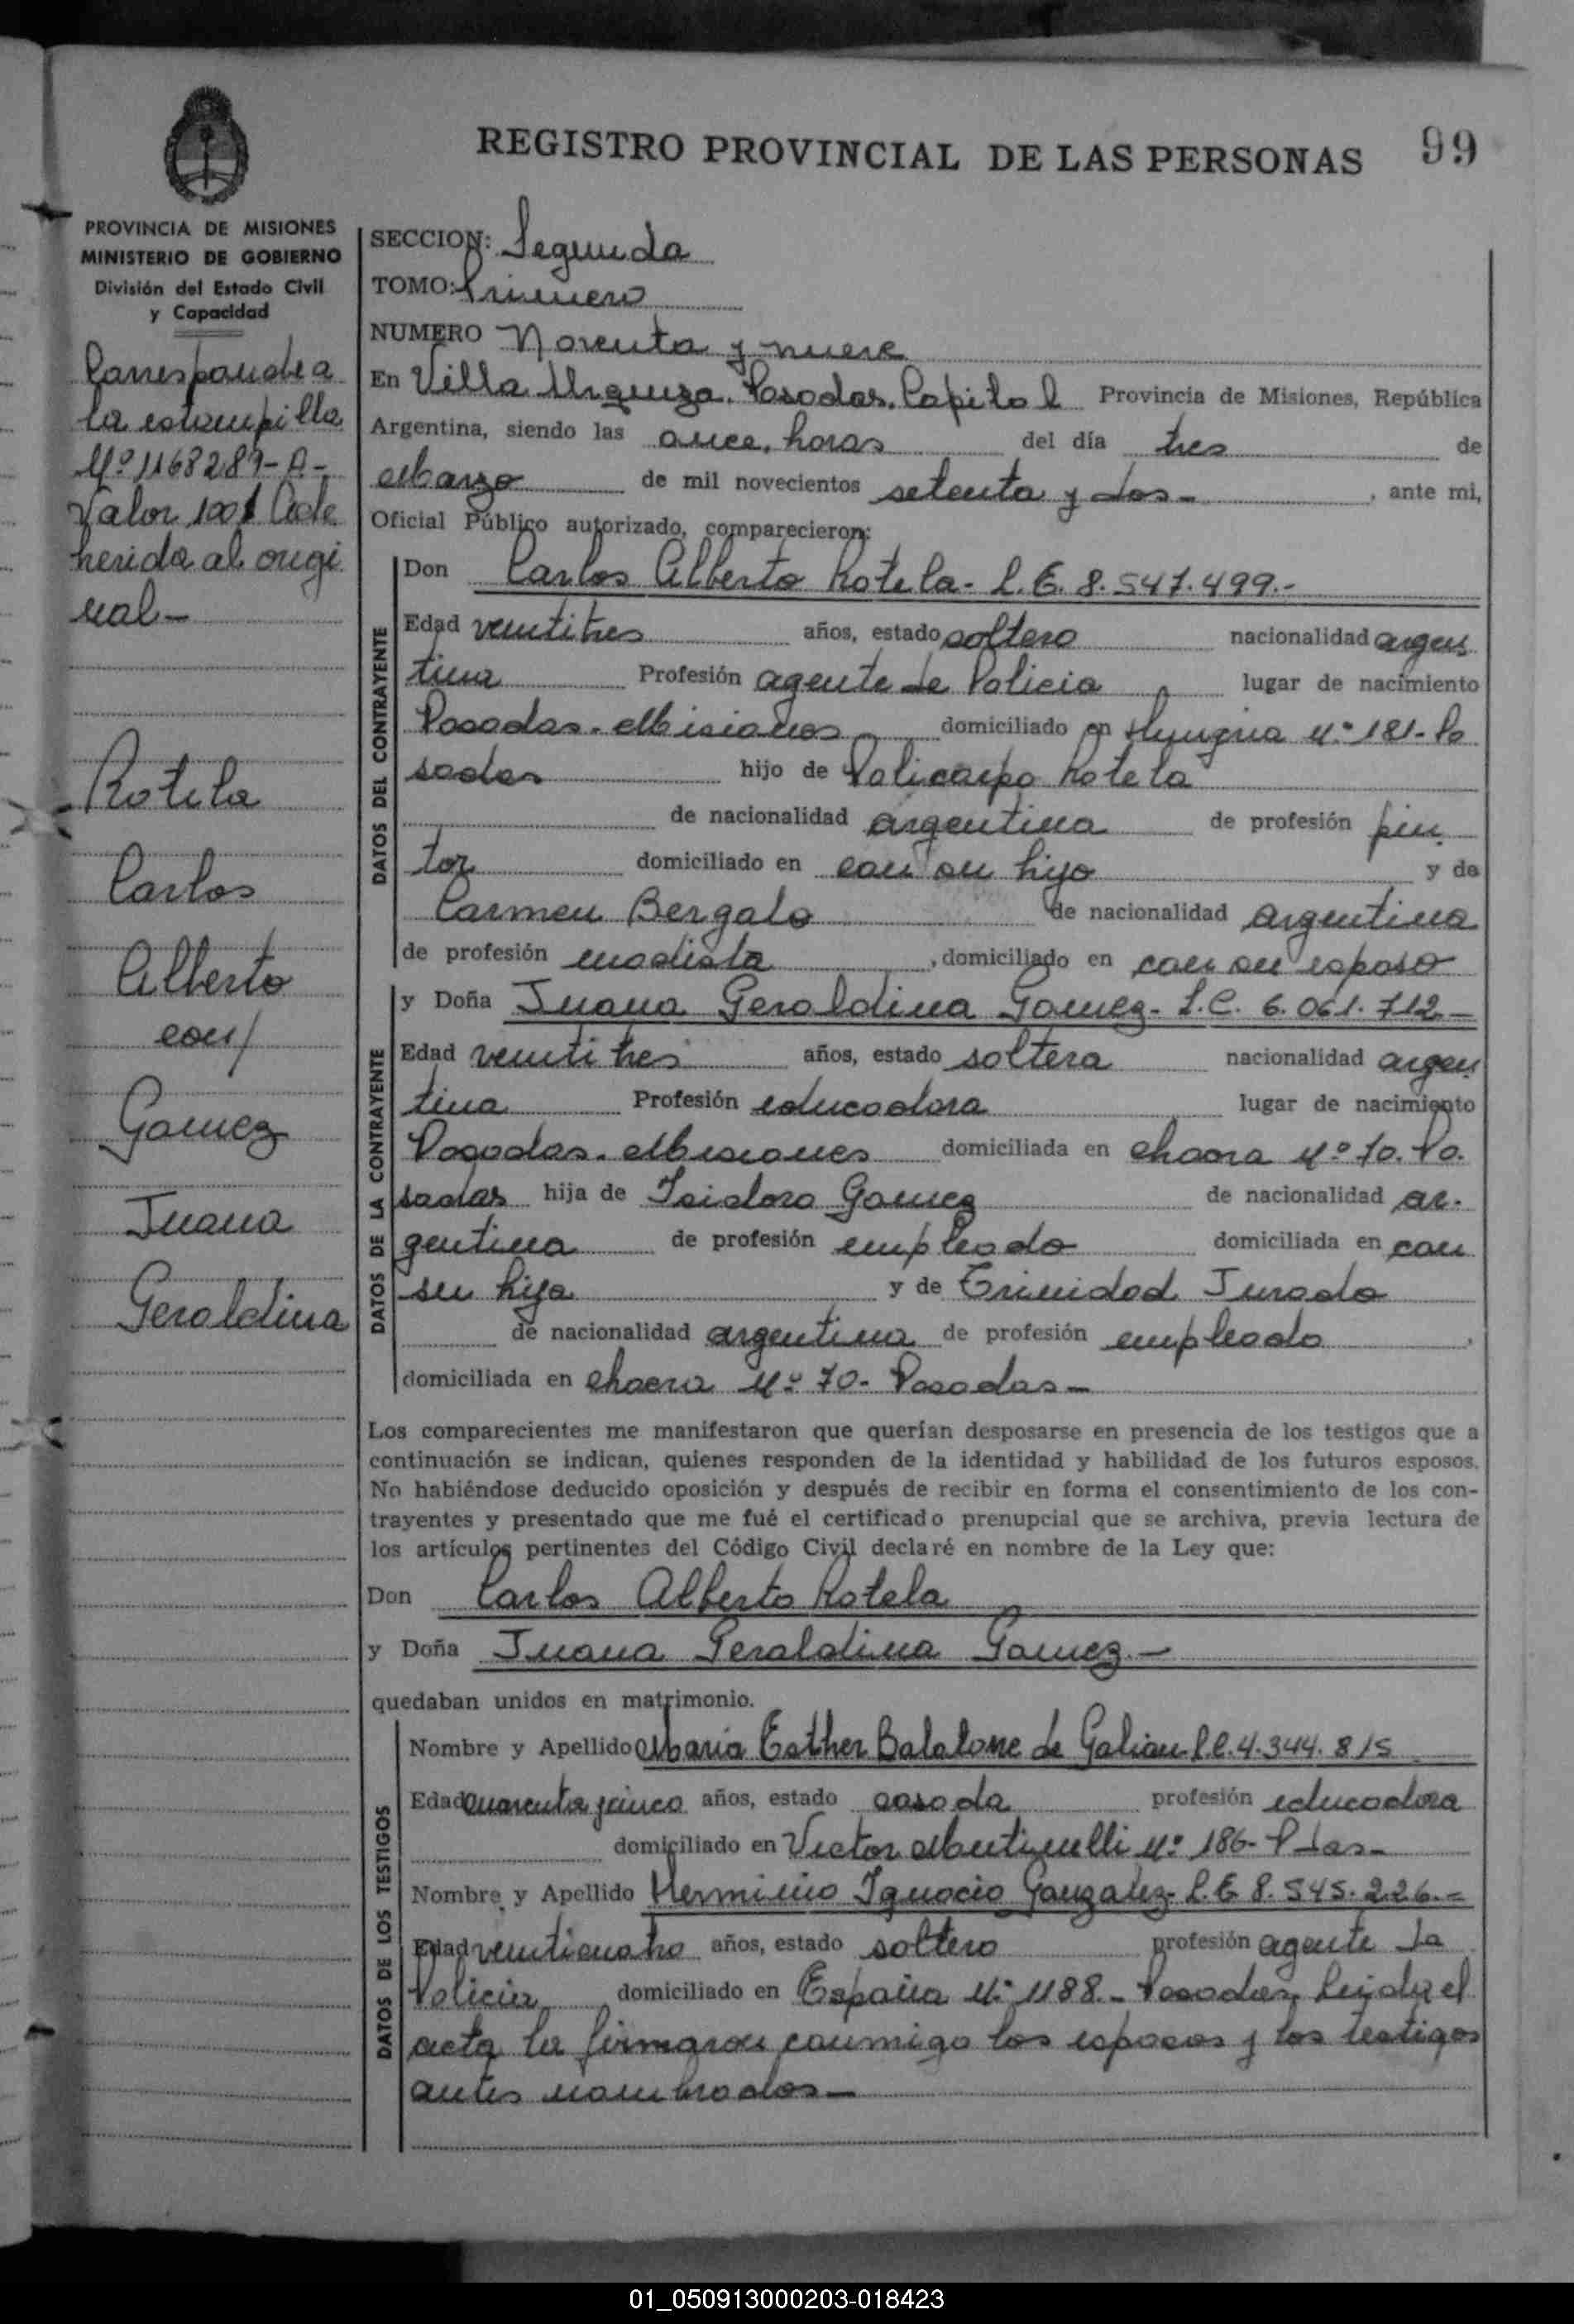 REGISTRO PROVINCIAL DE LAS PERSONAS 99
PROVINCIA DE MISIONES
MINISTERIO DE GOBIERNO
División del Estado Civil
y Capacidad
Corresponde a
la estampilla
Nº 1168289-A-
Valor 100$ Ade
herida al origi
nal-
Rotela
Carlos
Alberto
con/
Gomez
Juana
Geraldina
SECCION: Segunda
TOMO: Primero
NUMERO Noventa y nueve
En Villa Urquiza. Posadas. Capital Provincia de Misiones, República
Argentina, siendo las once, horas del día tres de
Marzo de mil novecientos setenta y dos- , ante mi,
Oficial Público autorizado, comparecieron:
DATOS DEL CONTRAYENTE
Don Carlos Alberto Rotela- L.E. 8.547.499.-
Edad veintitres años, estado soltero nacionalidad argen
tina Profesión agente de Policia lugar de nacimiento
Posadas. Misiones domiciliado en Hungria Nº 181- Po
sadas hijo de Policarpo Rotela
de nacionalidad argentina de profesión pin
tor domiciliado en con su hijo y de
Carmen Bergalo de nacionalidad argentina
de profesión modista , domiciliado en con su esposo
DATOS DE LA CONTRAYENTE
y Doña Juana Geraldina Gomez- L.C. 6.061.712-
Edad veintitres años, estado soltera nacionalidad argen
tina Profesión educadora lugar de nacimiento
Posadas. Misiones domiciliada en chacra Nº 70. Po.
sadas hija de Isidoro Gomez de nacionalidad ar.
gentina de profesión empleado domiciliada en con
su hija y de Trinidad Jurado
de nacionalidad argentina de profesión empleado ,
domiciliada en chacra Nº 70- Posadas-
Los comparecientes me manifestaron que querían desposarse en presencia de los testigos que a
continuación se indican, quienes responden de la identidad y habilidad de los futuros esposos.
No habiéndose deducido oposición y después de recibir en forma el consentimiento de los con-
trayentes y presentado que me fué el certificado prenupcial que se archiva, previa lectura de
los artículos pertinentes del Código Civil declaré en nombre de la Ley que:
Don Carlos Alberto Rotela
y Doña Juana Geraldina Gomez.-
quedaban unidos en matrimonio.
DATOS DE LOS TESTIGOS
Nombre y Apellido Maria Esther Balalone de Galian L.C. 4.344.815
Edad cuarenta y cinco años, estado casada profesión educadora
domiciliado en Victor Nº 186- P das-
Nombre y Apellido Herminio Ignacio Gonzalez- L.E. 8.545.226.-
Edad veinticuatro años, estado soltero profesión agente de
Policia domiciliado en España Nº 1188.- Posadas, Leida el
acta la firmaron conmigo los esposos y los testigos
antes nombrados-
01_050913000203-018423